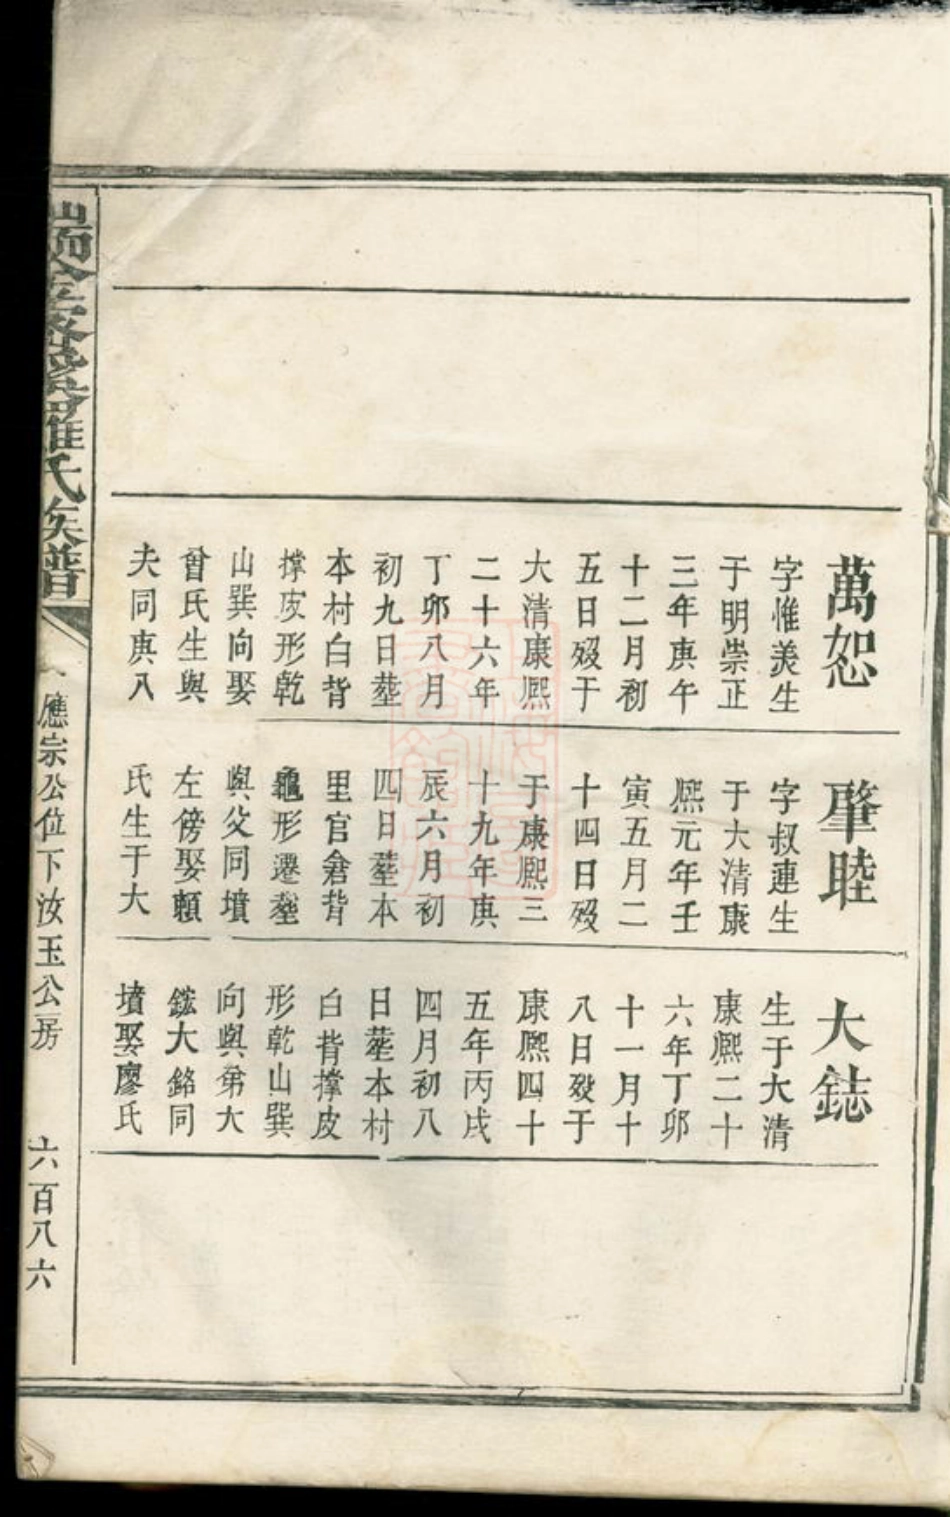 萬恕
字惟美生
于明崇正
三年庚午
十二月初
五日歿于
大清康熙
二十六年
丁卯八月
初九日塟
本村白背
撑皮形乾
山巽向娶
曾氏生與
夫同庚八
肇睦
字叔連生
于大清康
熙元年壬
寅五月二
十四日歿
于康熙三
十九年庚
辰六月初
四日塟本
里官倉背
龜形遷塟
與父同墳
左傍娶賴
氏生于大
大鋕
生于大清
康熙二十
六年丁卯
十一月十
八日歿于
康熙四十
五年丙戌
四月初八
日塟本村
白背撑皮
形乾山巽
向與弟大
鋐大銘同
墳娶廖氏
羅氏族譜
應宗公位下汝玉公房
六百八六